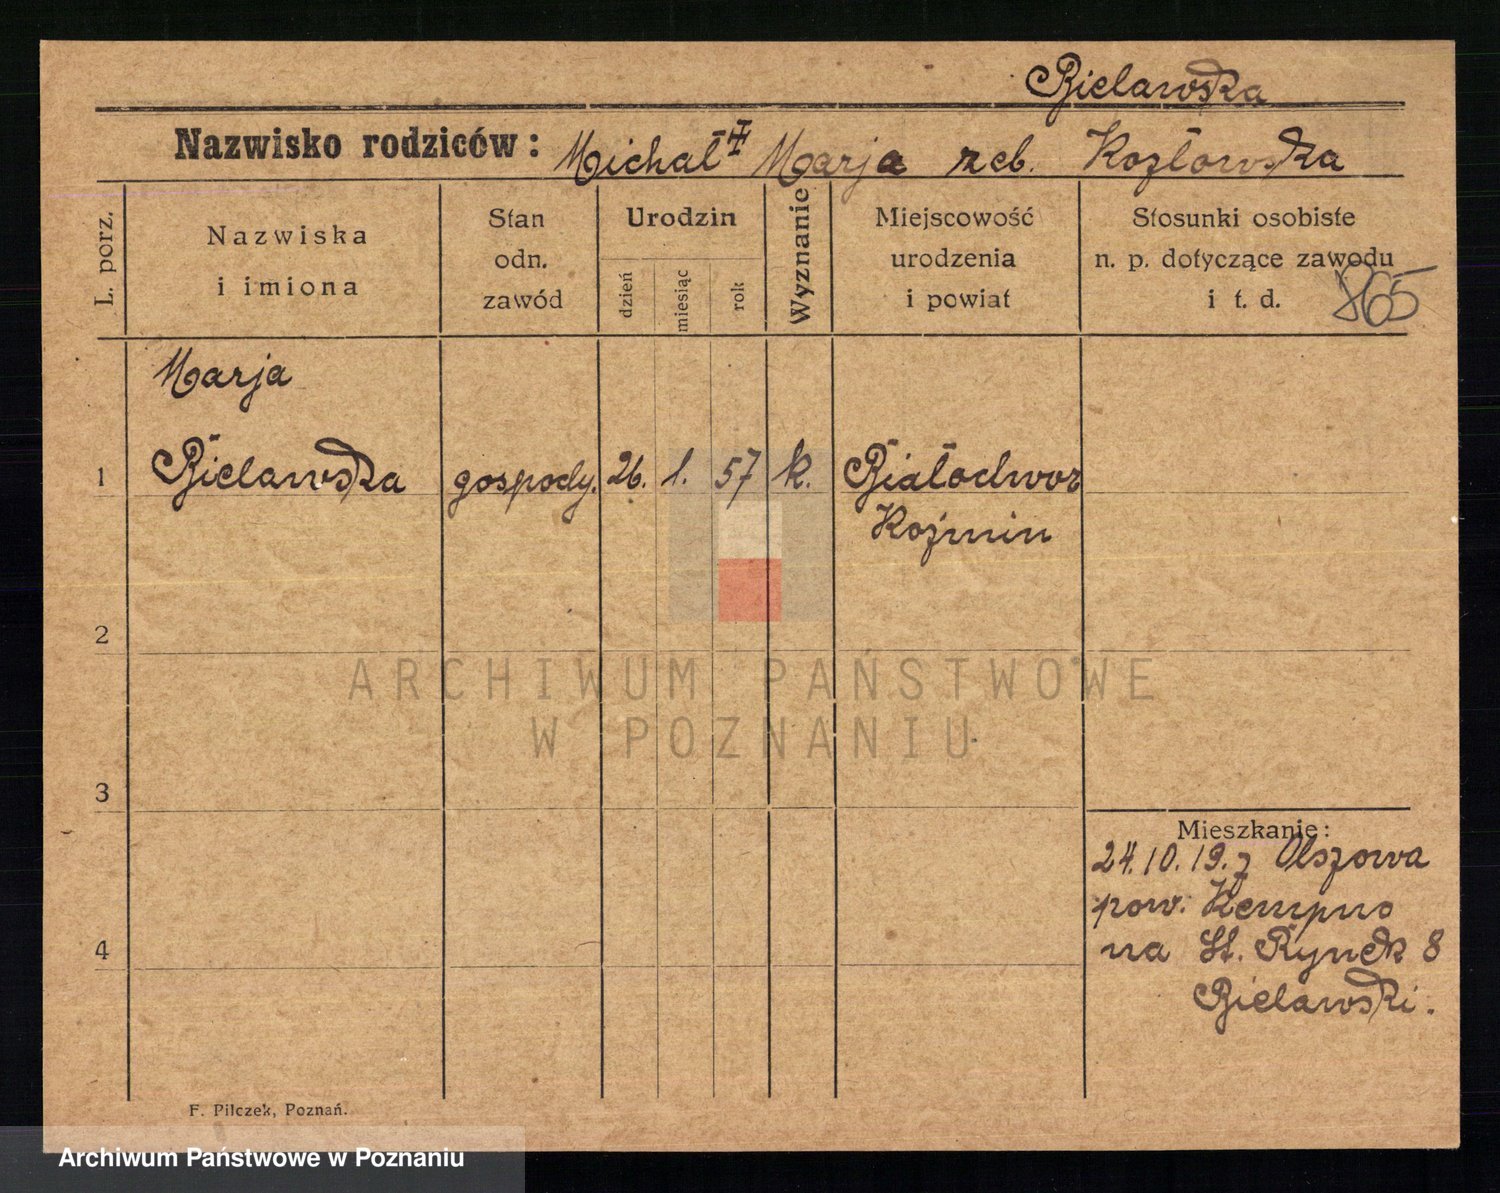 Bielawska
Nazwisko rodziców: Michał Marja zeb. Kozłowska
L. porz.
Nazwiska
i imiona
Stan
odn.
zawód
Urodzin
dzień
miesiąc
rok
Wyznanie
Miejscowość
urodzenia
i powiat
Stosunki osobiste
n. p. dotyczące zawodu
i t. d.
865
Marja
1 Bielawska gospody. 26. 1. 57 k. Białodwor
Koźmin
2
ARCHIWUM PAŃSTWOWE
W POZNANIU
3
Mieszkanie:
24.10.19. z Olszowa
pow. Kempno
4
na St. Rynek 8
Bielawski.
F. Pilczek, Poznań.
Archiwum Państwowe w Poznaniu